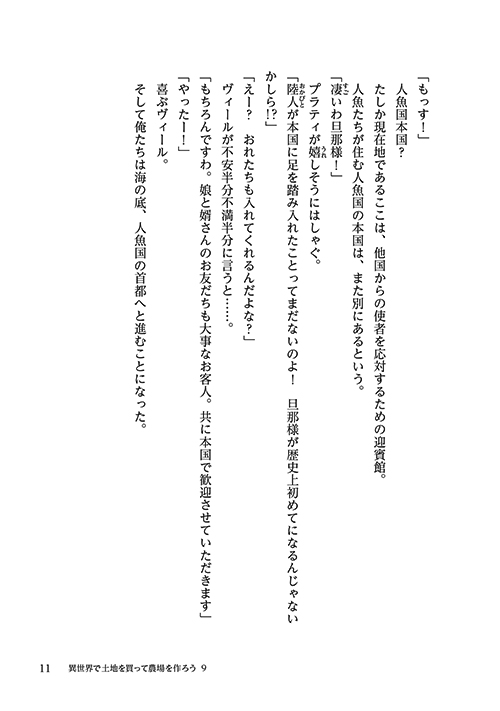 「もっす！」
人魚国本国？
たしか現在地であるここは、他国からの使者を応対するための迎賓館。
人魚たちが住む人魚国の本国は、また別にあるという。
「凄いわ旦那様！」
プラティが嬉しそうにはしゃぐ。
「陸人が本国に足を踏み入れたことってまだないのよ！　旦那様が歴史上初めてになるんじゃない
かしら!?」
「えー？　おれたちも入れてくれるんだよな？」
ヴィールが不安半分不満半分に言うと……。
「もちろんですわ。娘と婿さんのお友だちも大事なお客人。共に本国で歓迎させていただきます」
「やったー！」
喜ぶヴィール。
そして俺たちは海の底、人魚国の首都へと進むことになった。
11　異世界で土地を買って農場を作ろう 9